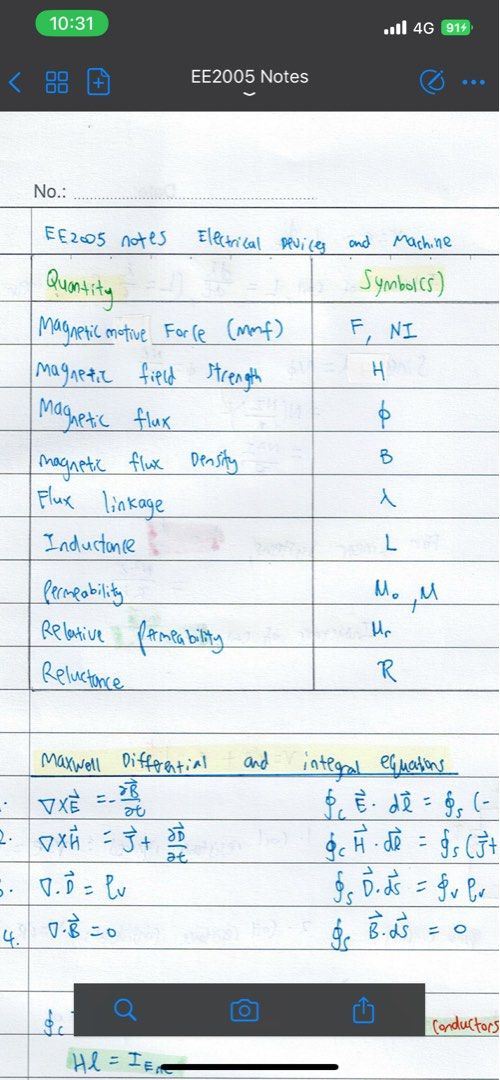 10:31
4G 91
EE2005 Notes
No.:
EE2005 notes Electrical Devices and Machine
Quantity Symbol(s)
Magnetic motive Force (mmf) F, NI
Magnetic field strength H
Magnetic flux ϕ
Magnetic flux Density B
Flux linkage λ
Inductance L
Permeability M₀, M
Relative permeability Mᵣ
Reluctance R
Maxwell Differential and integral equations
∇×E⃗ = -∂B⃗/∂t ∮c E⃗ . dℓ⃗ = ∮s (-
2. ∇×H⃗ = J⃗ + ∂D⃗/∂t ∮c H⃗ . dℓ⃗ = ∮s (J⃗+
∇.D⃗ = ρv ∮s D⃗.ds⃗ = ∮v ρv
4. ∇.B⃗ = 0 ∮s B⃗.ds⃗ = 0
∮c conductors
Hℓ = I